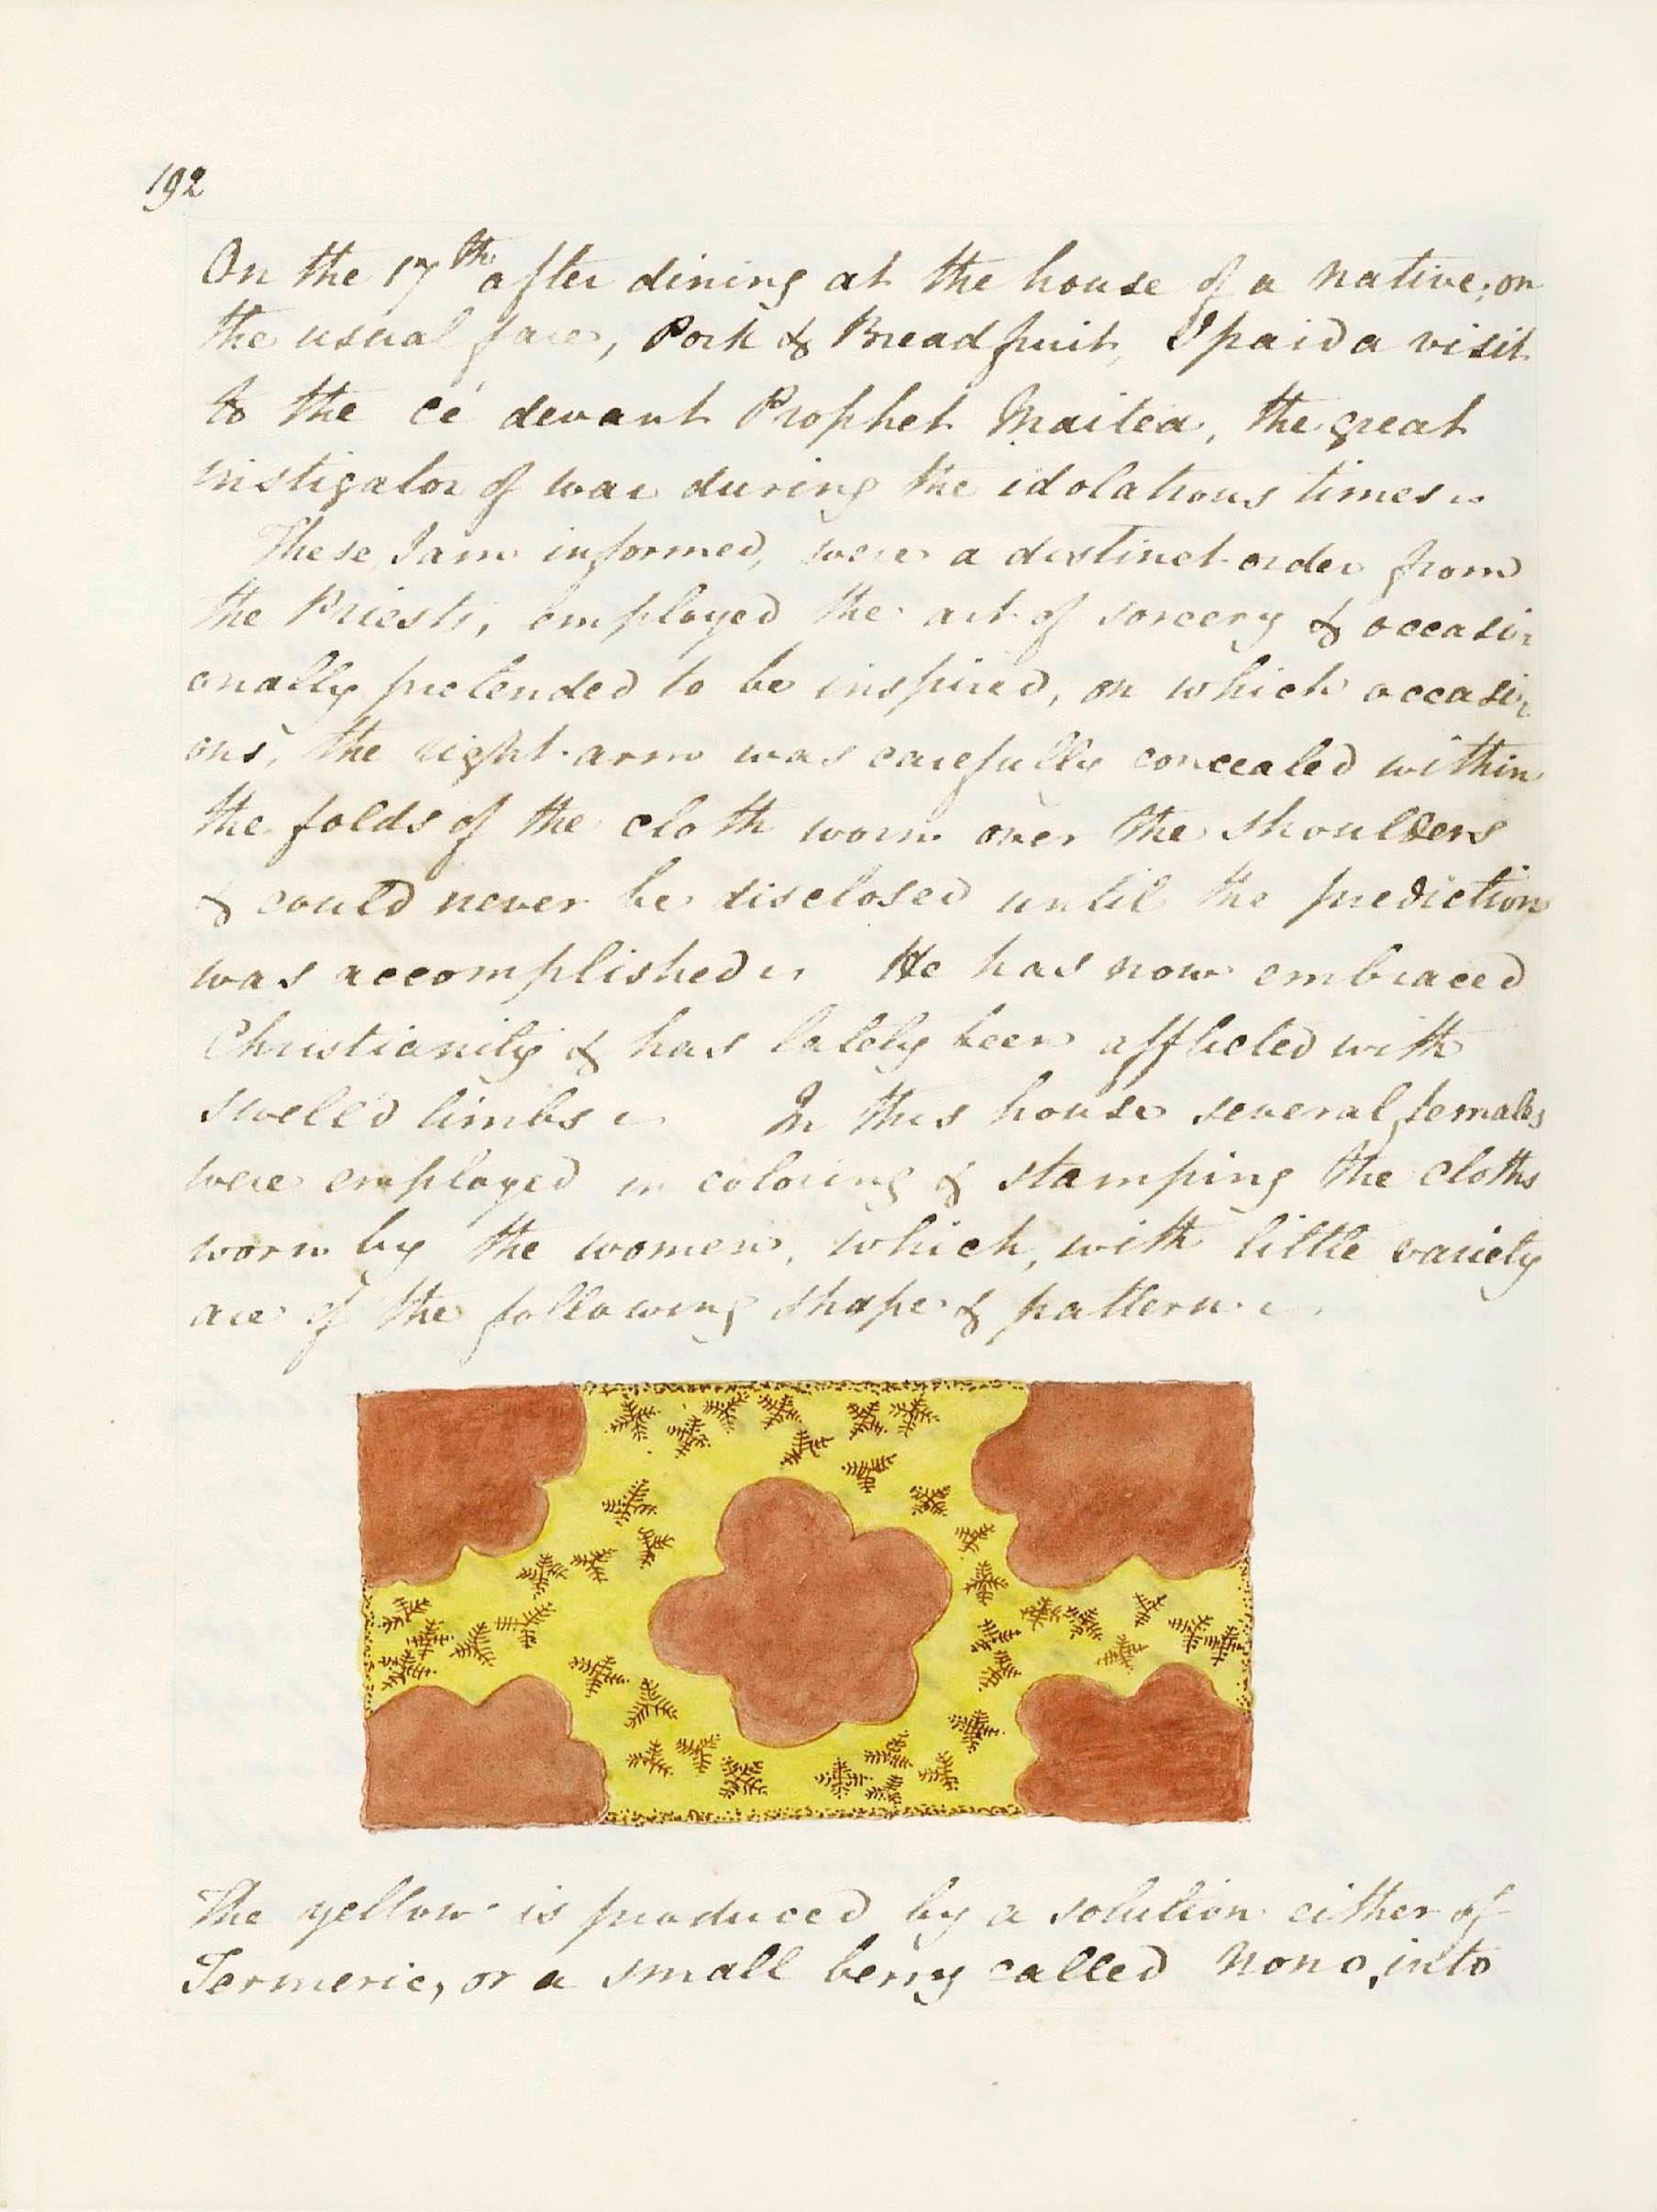 192
On the 17th after dining at the house of a native, on
the usual fare, Pork & Breadfruit, I paid a visit
to the cé devant Prophet Maitea, the great
instigator of war during the idolatrous times.
These, I am informed, were a distinct order from
the Priests, employed the art of sorcery & occasi-
onally pretended to be inspired, on which occasi-
ons, the right arm was carefully concealed within
the folds of the cloth worn over the shoulders
& could never be disclosed until the prediction
was accomplished. He has now embraced
Christianity & has lately been afflicted with
swell'd limbs. In this house several females
were employed in coloring & stamping the cloths
worn by the women, which, with little variety
are of the following shape & pattern.
The yellow is produced by a solution either of
Termeric, or a small berry called Nono, into